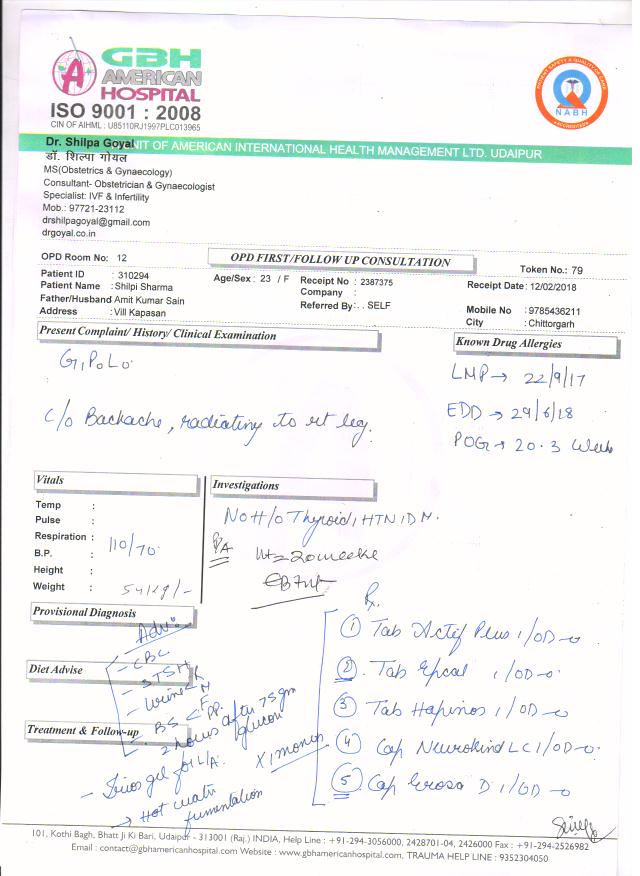 GBH
AMERICAN
HOSPITAL
ISO 9001 : 2008
CIN OF AIHML : U85110RJ1997PLC013965
NABH
Dr. Shilpa Goyal
NIT OF AMERICAN INTERNATIONAL HEALTH MANAGEMENT LTD. UDAIPUR
डॉ. शिल्पा गोयल
MS(Obstetrics & Gynaecology)
Consultant- Obstetrician & Gynaecologist
Specialist: IVF & Infertility
Mob.: 97721-23112
drshilpagoyal@gmail.com
drgoyal.co.in
OPD Room No: 12
OPD FIRST/FOLLOW UP CONSULTATION
Token No.: 79
Patient ID : 310294
Age/Sex : 23 / F
Receipt No : 2387375
Receipt Date: 12/02/2018
Patient Name : Shilpi Sharma
Company :
Father/Husband Amit Kumar Sain
Referred By: . . SELF
Mobile No : 9785436211
Address : Vill Kapasan
City : Chittorgarh
Present Complaint/ History/ Clinical Examination
Known Drug Allergies
G1P0L0
LMP → 22/9/17
C/o Backache, radiating to rt leg.
EDD → 29/6/18
POG → 20.3 Weeks
Vitals
Investigations
Temp :
Pulse :
Respiration :
B.P. : 110/70
Height :
Weight : 54kg/-
No H/o Thyroid, HTN, DM.
P/A Ut = 20 weeks
Provisional Diagnosis
Diet Advise
Treatment & Follow-up
Adv:
- CBC
- STSH
- Urine R M
- BS F PP
2 hours after 75gm glucose
gel for L/A.
→ Hot water fumentation
X 1 month
Rx.
1 Tab Actif Plus 1/OD
2. Tab Epcal 1/OD
3 Tab Hapinos 1/OD
4 Cap Neurokind LC 1/OD
5 Cap D 1/OD
101, Kothi Bagh, Bhatt Ji Ki Bari, Udaipur - 313001 (Raj.) INDIA, Help Line : +91-294-3056000, 2428701-04, 2426000 Fax : +91-294-2526982
Email : contact@gbhamericanhospital.com Website : www.gbhamericanhospital.com, TRAUMA HELP LINE : 9352304050